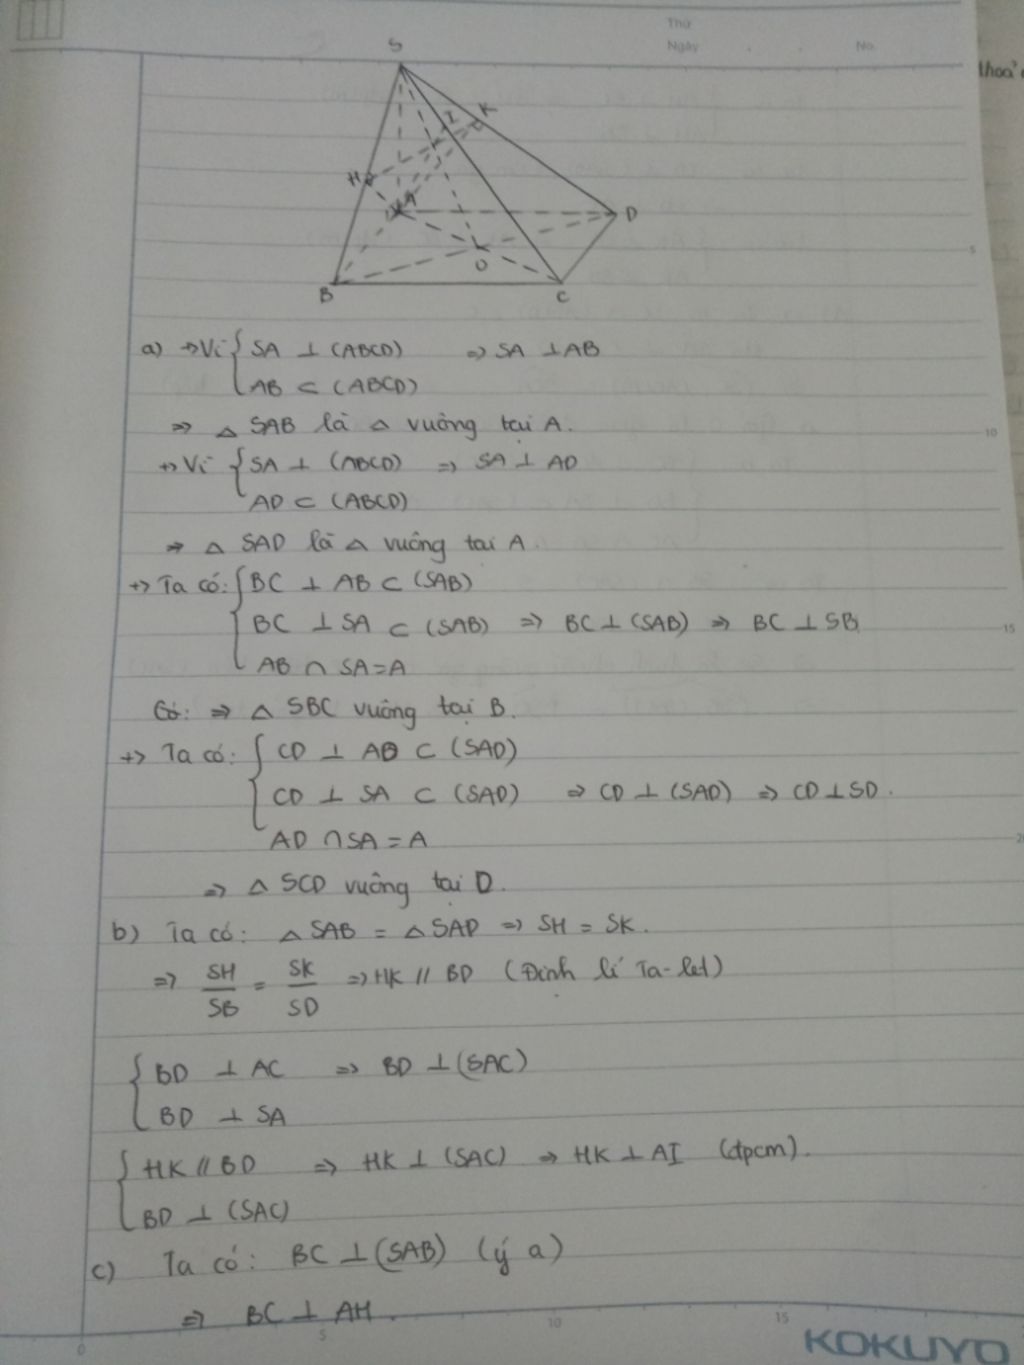 Thứ
Ngày . . No.
thoả
S
K
I
H
A
D
O
B
C
5
a) +> Vì { SA ⊥ (ABCD) => SA ⊥ AB
AB ⊂ (ABCD)
=> △ SAB là △ vuông tại A.
10
+> Vì { SA ⊥ (ABCD) => SA ⊥ AD
AD ⊂ (ABCD)
=> △ SAD là △ vuông tại A.
+> Ta có: { BC ⊥ AB ⊂ (SAB)
BC ⊥ SA ⊂ (SAB) => BC ⊥ (SAB) => BC ⊥ SB
15
AB ∩ SA = A
Có: => △ SBC vuông tại B.
+> Ta có: { CD ⊥ AD ⊂ (SAD)
CD ⊥ SA ⊂ (SAD) => CD ⊥ (SAD) => CD ⊥ SD.
AD ∩ SA = A
=> △ SCD vuông tại D.
b) Ta có: △ SAB = △ SAD => SH = SK.
=> SH/SB = SK/SD => HK // BD (Định lí Ta-let)
{ BD ⊥ AC => BD ⊥ (SAC)
BD ⊥ SA
{ HK // BD => HK ⊥ (SAC) => HK ⊥ AI (đpcm).
BD ⊥ (SAC)
c) Ta có: BC ⊥ (SAB) (ý a)
=> BC ⊥ AH.
0 5 10 15
KOKUYO